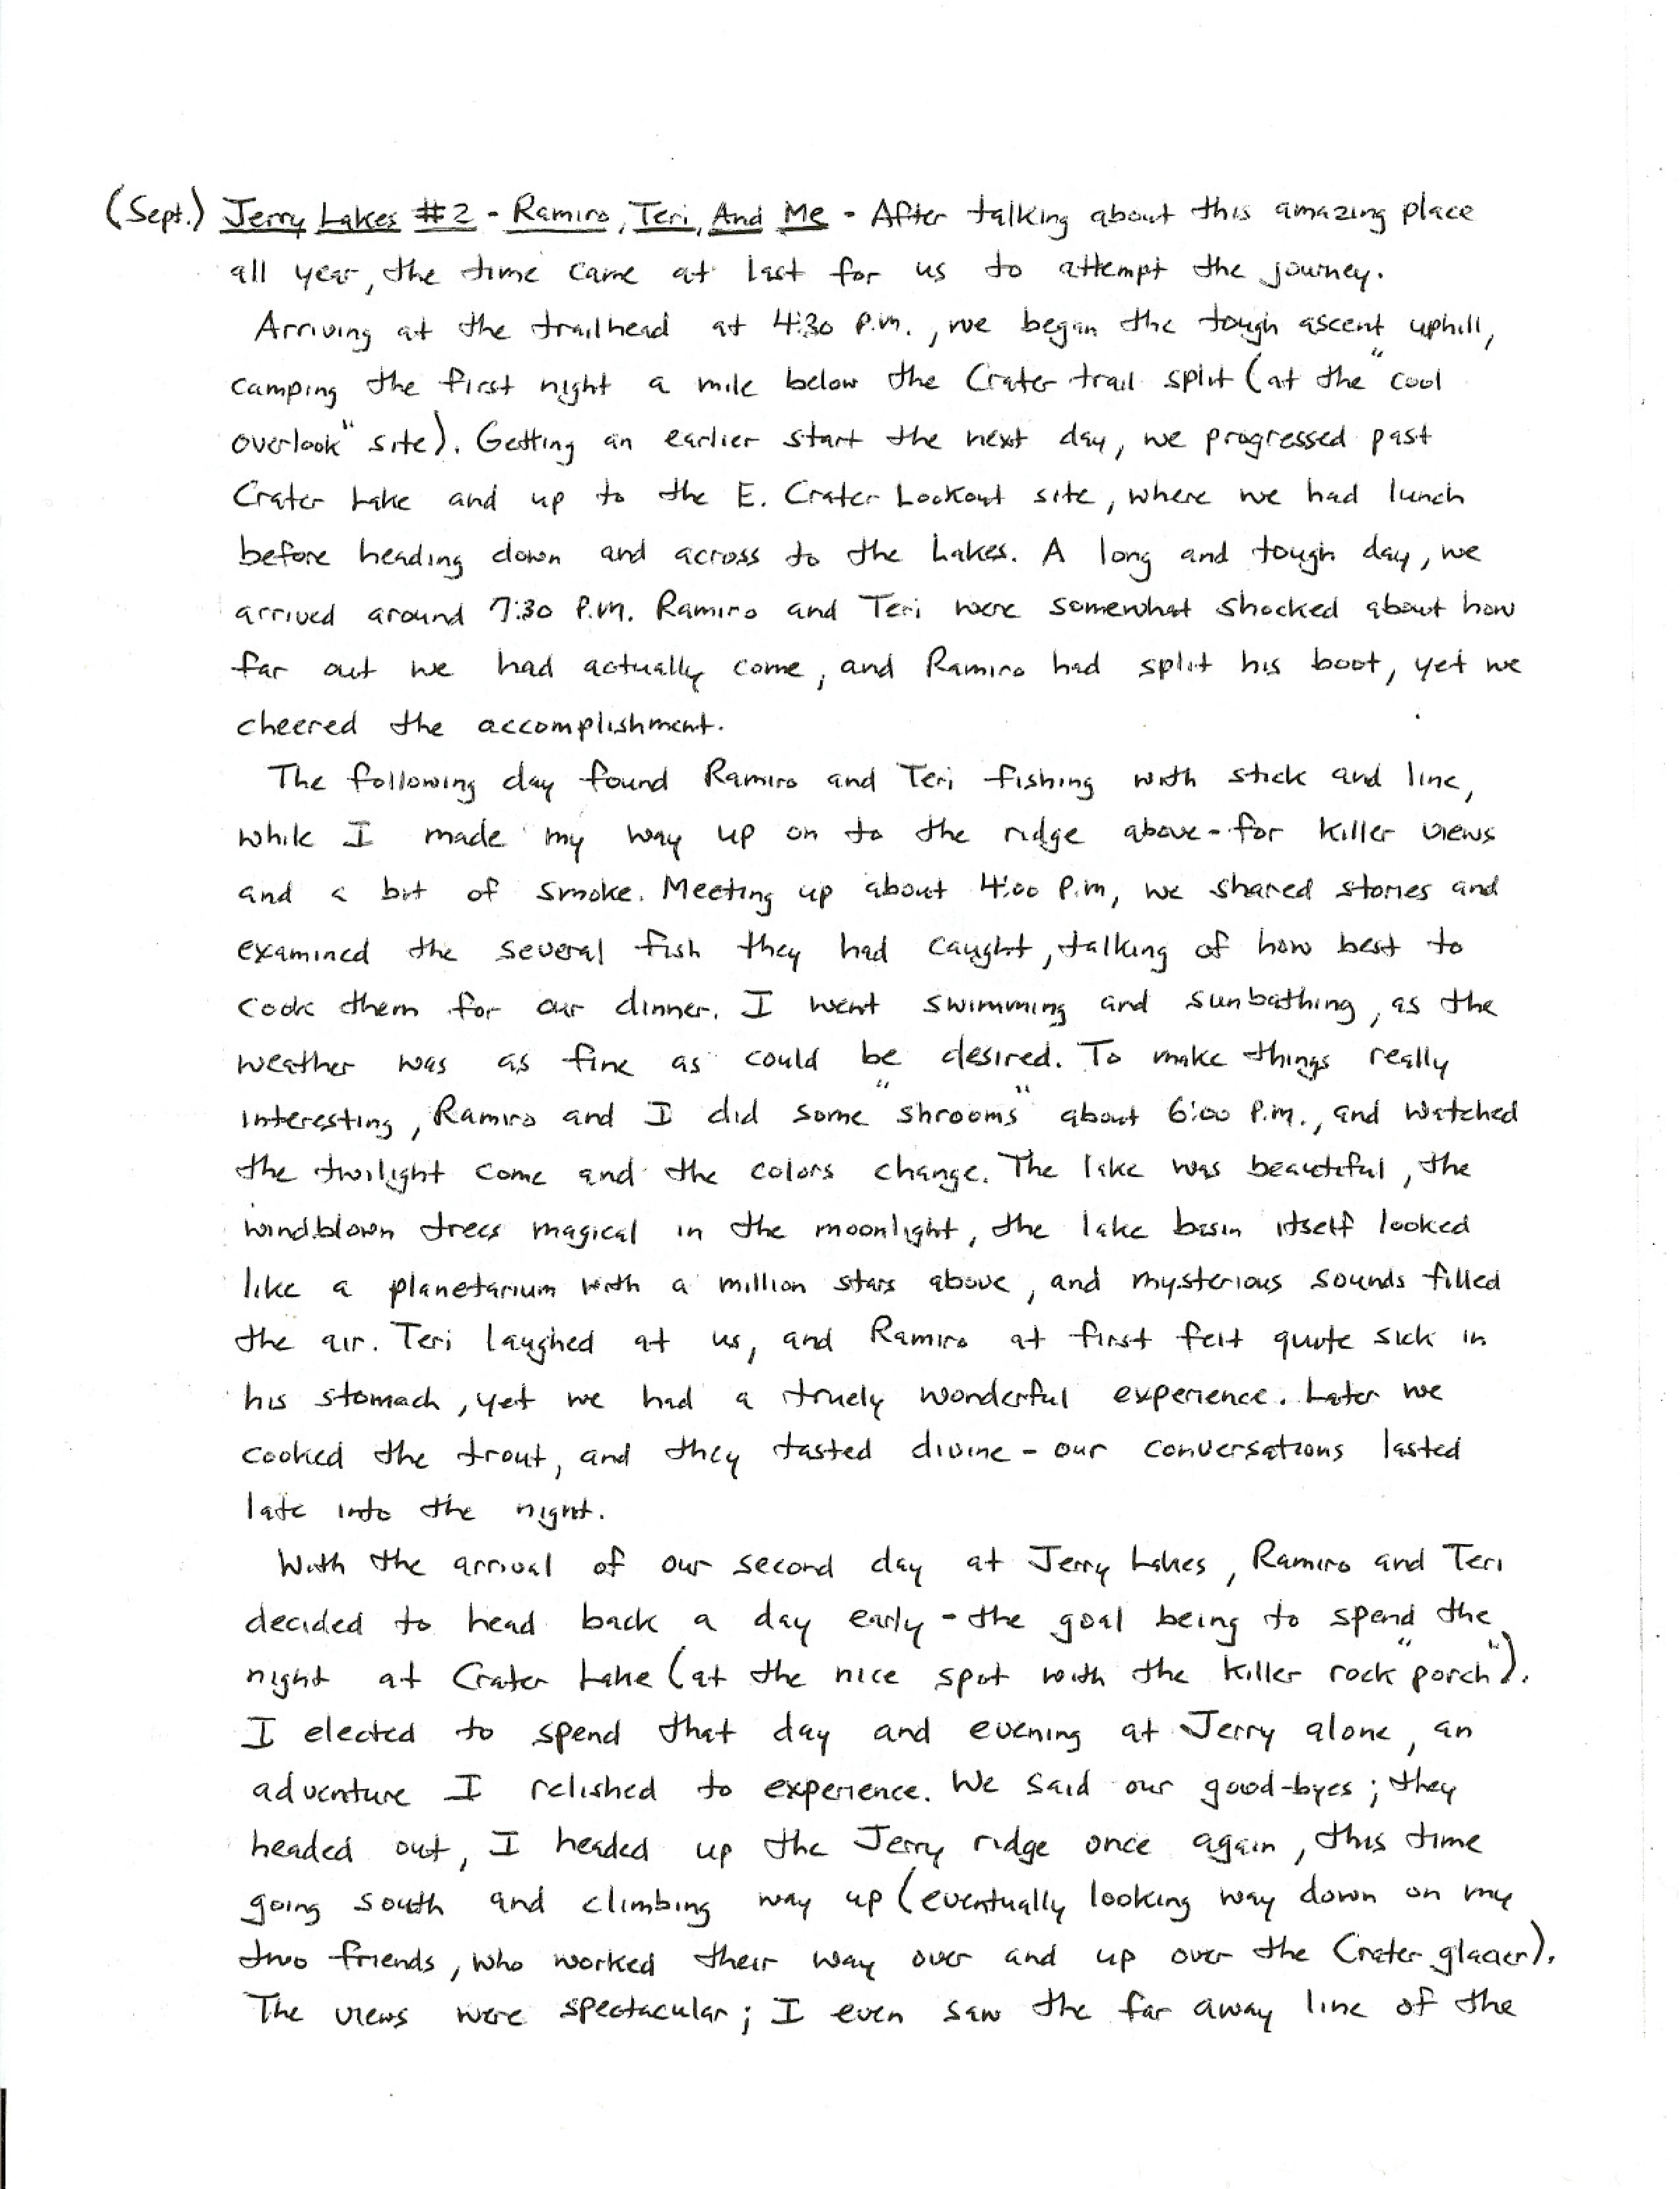 (Sept.) Jerry Lakes #2 - Ramiro, Teri, And Me - After talking about this amazing place
all year, the time came at last for us to attempt the journey.
Arriving at the trailhead at 4:30 P.m., we began the tough ascent uphill,
camping the first night a mile below the Crater trail split (at the "cool
overlook" site). Getting an earlier start the next day, we progressed past
Crater Lake and up to the E. Crater Lookout site, where we had lunch
before heading down and across to the Lakes. A long and tough day, we
arrived around 7:30 P.M. Ramiro and Teri were somewhat shocked about how
far out we had actually come, and Ramiro had split his boot, yet we
cheered the accomplishment.
The following day found Ramiro and Teri fishing with stick and line,
while I made my way up on to the ridge above - for killer views
and a bit of smoke. Meeting up about 4:00 P.m, we shared stories and
examined the several fish they had caught, talking of how best to
cook them for our dinner. I went swimming and sunbathing, as the
weather was as fine as could be desired. To make things really
interesting, Ramiro and I did some "shrooms" about 6:00 P.m., and watched
the twilight come and the colors change. The lake was beautiful, the
windblown trees magical in the moonlight, the lake basin itself looked
like a planetarium with a million stars above, and mysterious sounds filled
the air. Teri laughed at us, and Ramiro at first felt quite sick in
his stomach, yet we had a truely wonderful experience. Later we
cooked the trout, and they tasted divine - our conversations lasted
late into the night.
With the arrival of our second day at Jerry Lakes, Ramiro and Teri
decided to head back a day early - the goal being to spend the
night at Crater Lake (at the nice spot with the killer rock "porch").
I elected to spend that day and evening at Jerry alone, an
adventure I relished to experience. We said our good-byes; they
headed out, I headed up the Jerry ridge once again, this time
going south and climbing way up (eventually looking way down on my
two friends, who worked their way over and up over the Crater glacier).
The views were spectacular; I even saw the far away line of the